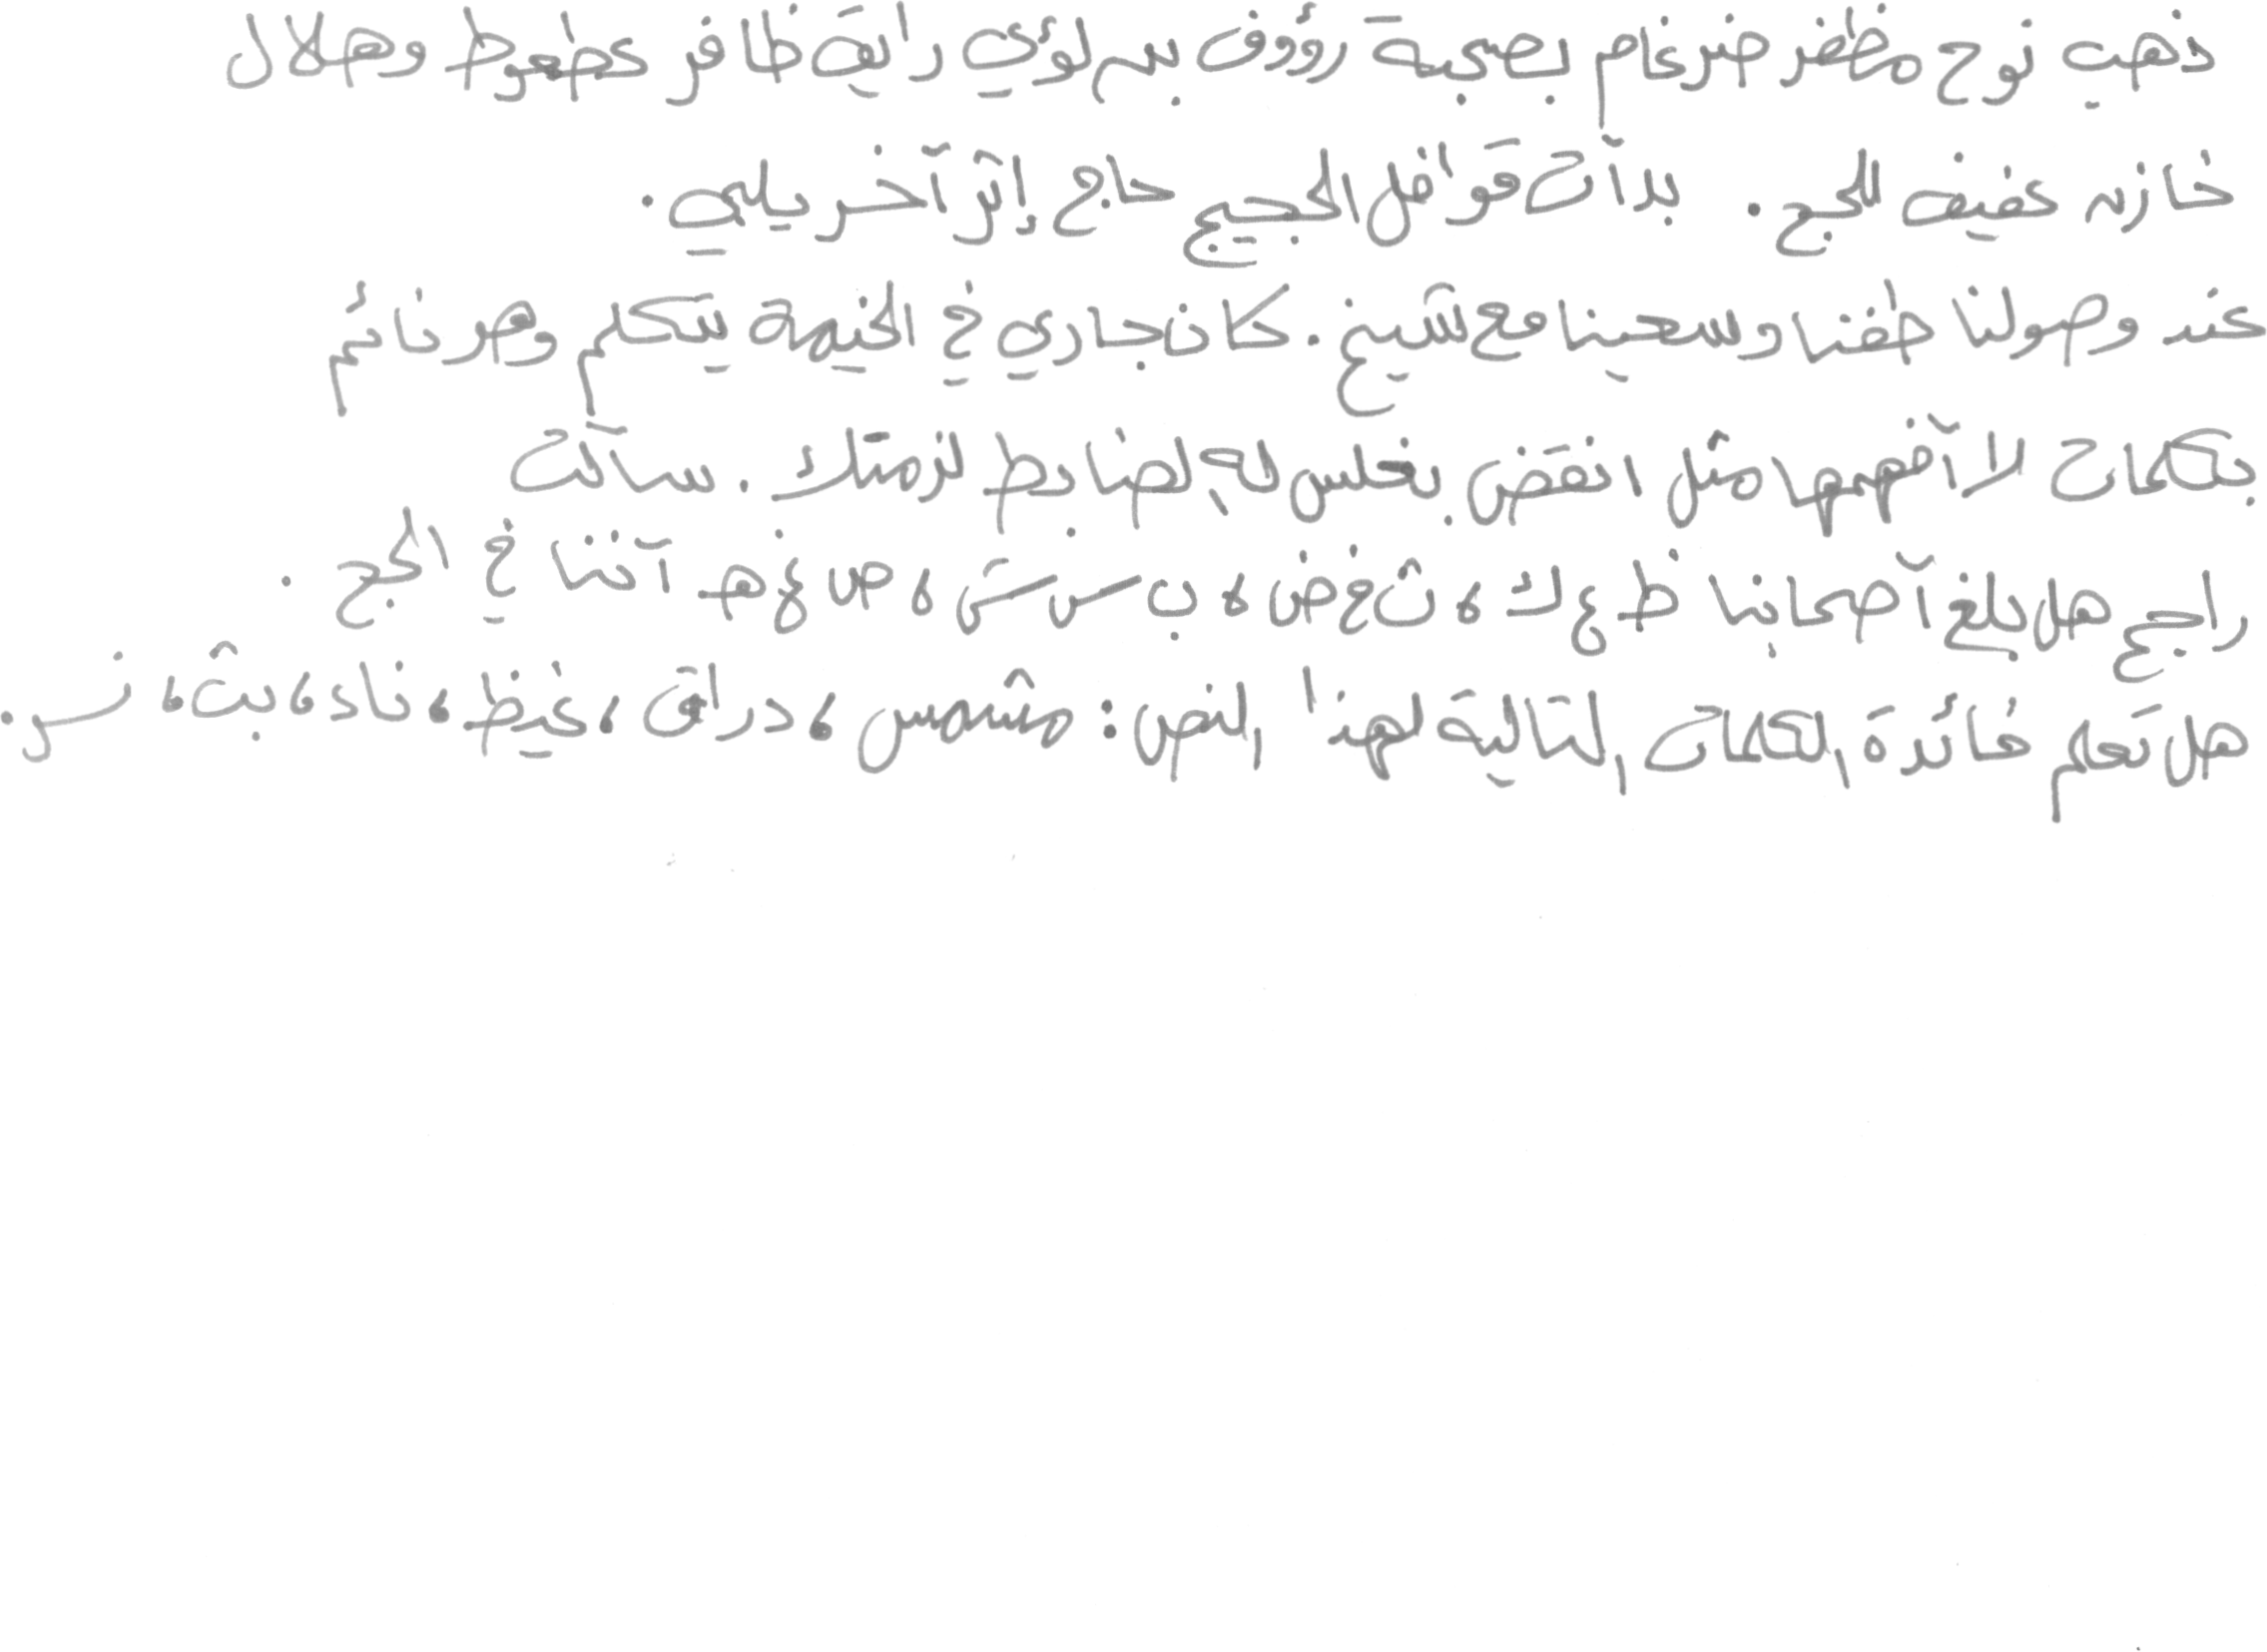 ذهب نوح مظفر ضرغام بصحبة رؤوف بن لؤي رايق ظافر عطعوط وهلال
خازن عفيف للحج . بدأت قوافل الحجيج حاج إثر آخر يلبي .
عند وصولنا طفنا وسعينا مع شيخ . كان جاري في الخيمة يتكلم وهو نائم
بكلمات لا أفهمها مثل انقض بغلس له الضابط لزمتك . سألت
راجح هل بلغ أصحابنا ظ ع ك ، ث غ ض ، ب س ش ، ص غ هـ أننا في الحج .
هل تعلم فائدة الكلمات التالية لهذا النص : مشمس ، دراق ، غيظ ، ناء ، بث ، نس .